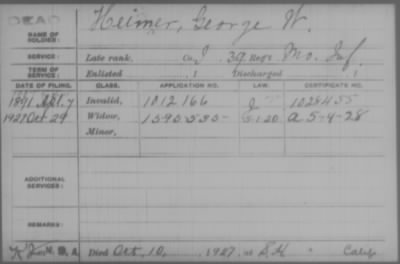 DEAD
NAME OF SOLDIER: Heimer, George W.
SERVICE: Late rank, Co. 39 Reg't Mo. Inf.
TERM OF SERVICE: Enlisted , 1 Discharged , 1
DATE OF FILING. CLASS. APPLICATION NO. LAW. CERTIFICATE NO.
1891 Apl. 7 Invalid, 1012166 1028455
1927 Oct 29 Widow, 1590535 a 5-4-28
Minor,
ADDITIONAL SERVICES:
REMARKS:
Died Oct. 10, 1927, at Calif